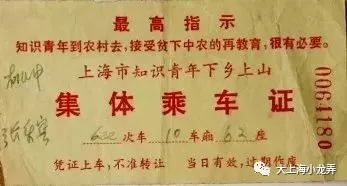 最高指示
知识青年到农村去，接受贫下中农的再教育，很有必要。
上海市知识青年下乡上山
集体乘车证
次车 10 车厢 62 座
凭证上车，不准转让 当日有效，过期作废
0061180
大上海小龙弄